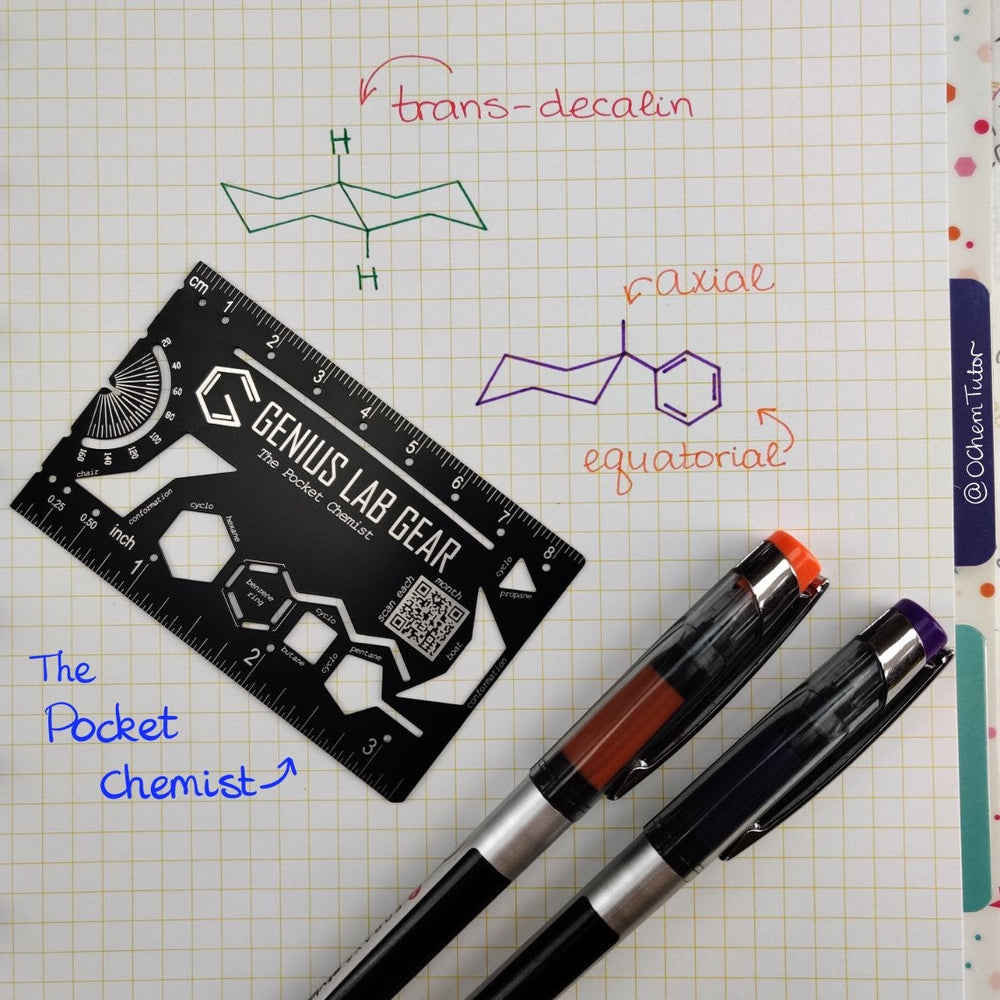 trans-decalin
H
H
axial
equatorial
@OChemTutor
cm 1 2 3 4 5 6 7 8
20 40 60 80 100 120 140 160
GENIUS LAB GEAR
The Pocket Chemist
chair
conformation
0.25 0.50
inch 1 2 3
cyclo
hexane
benzene
ring
cyclo
butane
cyclo
pentane
scan each
month
boat
conformation
cyclo
propane
The
Pocket
Chemist